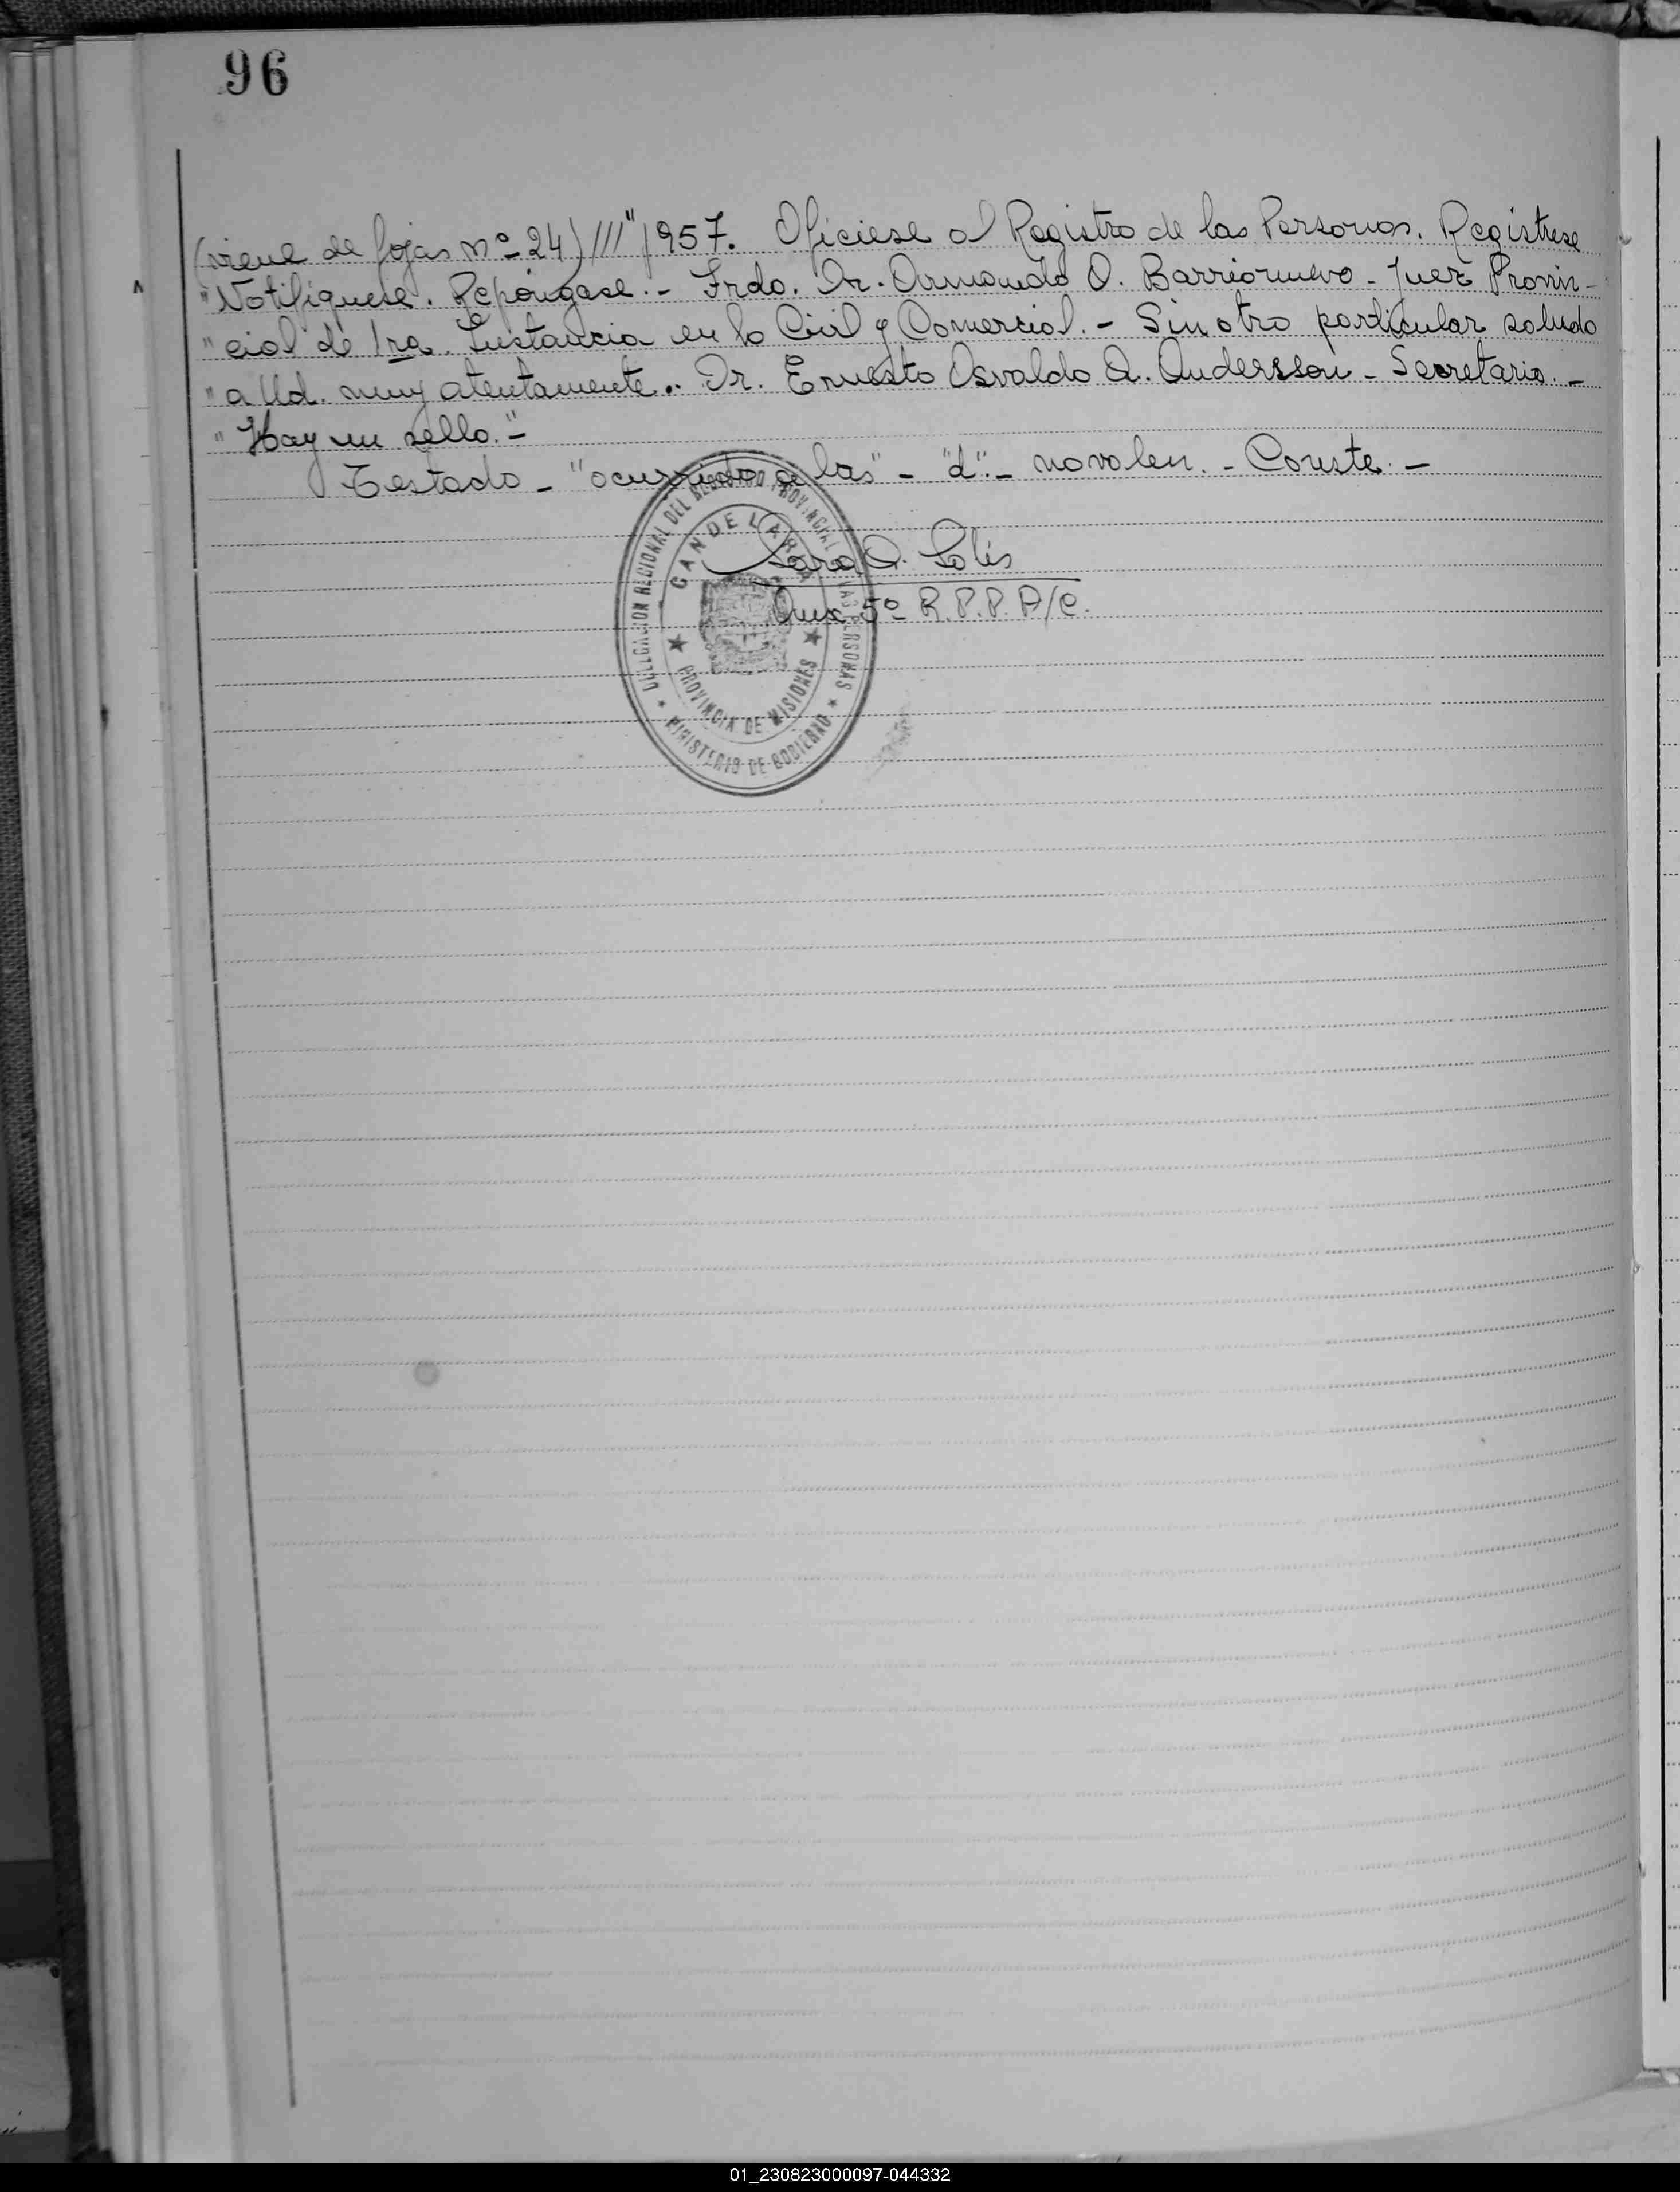 96
(viene de fojas nº 24) /// "1957. Oficiese al Registro de las Personas. Registrese
"Notifiquese. Repóngase.- Frdo. Dr. Armando O. Barrionuevo - Juez Provin-
"cial de 1ra. Instancia en lo Civil y Comercial.- Sin otro particular saludo
"a Ud. muy atentamente.. Dr. Ernesto Osvaldo A. Andersson - Secretario.-
"Hay un sello."-
Testado - "ocurrido a las" - "d".- no valen. - Conste.-
Sara A. Solis
Aux 5º R.P.P. A/C.
DELEGACION REGIONAL DEL REGISTRO PROVINCIAL LAS PERSONAS
CANDELARIA
PROVINCIA DE MISIONES
MINISTERIO DE GOBIERNO
01_230823000097-044332